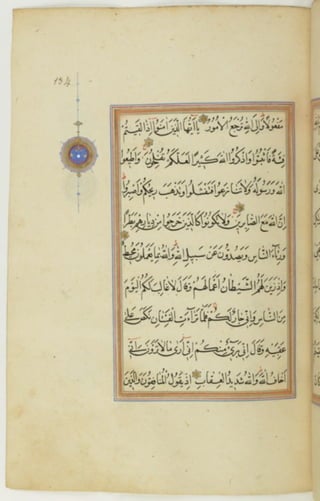 مَفْعُولًا وَإِلَى اللَّهِ تُرْجَعُ الْأُمُورُ يَا أَيُّهَا الَّذِينَ آمَنُوا إِذَا لَقِيتُمْ
فِئَةً فَاثْبُتُوا وَاذْكُرُوا اللَّهَ كَثِيرًا لَعَلَّكُمْ تُفْلِحُونَ وَأَطِيعُوا
اللَّهَ وَرَسُولَهُ وَلَا تَنَازَعُوا فَتَفْشَلُوا وَتَذْهَبَ رِيحُكُمْ وَاصْبِرُوا
إِنَّ اللَّهَ مَعَ الصَّابِرِينَ وَلَا تَكُونُوا كَالَّذِينَ خَرَجُوا مِنْ دِيَارِهِمْ بَطَرًا
وَرِئَاءَ النَّاسِ وَيَصُدُّونَ عَنْ سَبِيلِ اللَّهِ وَاللَّهُ بِمَا يَعْمَلُونَ مُحِيطٌ
وَإِذْ زَيَّنَ لَهُمُ الشَّيْطَانُ أَعْمَالَهُمْ وَقَالَ لَا غَالِبَ لَكُمُ الْيَوْمَ
مِنَ النَّاسِ وَإِنِّي جَارٌ لَكُمْ فَلَمَّا تَرَاءَتِ الْفِئَتَانِ نَكَصَ عَلَى
عَقِبَيْهِ وَقَالَ إِنِّي بَرِيءٌ مِنْكُمْ إِنِّي أَرَى مَا لَا تَرَوْنَ إِنِّي
أَخَافُ اللَّهَ وَاللَّهُ شَدِيدُ الْعِقَابِ إِذْ يَقُولُ الْمُنَافِقُونَ وَالَّذِينَ